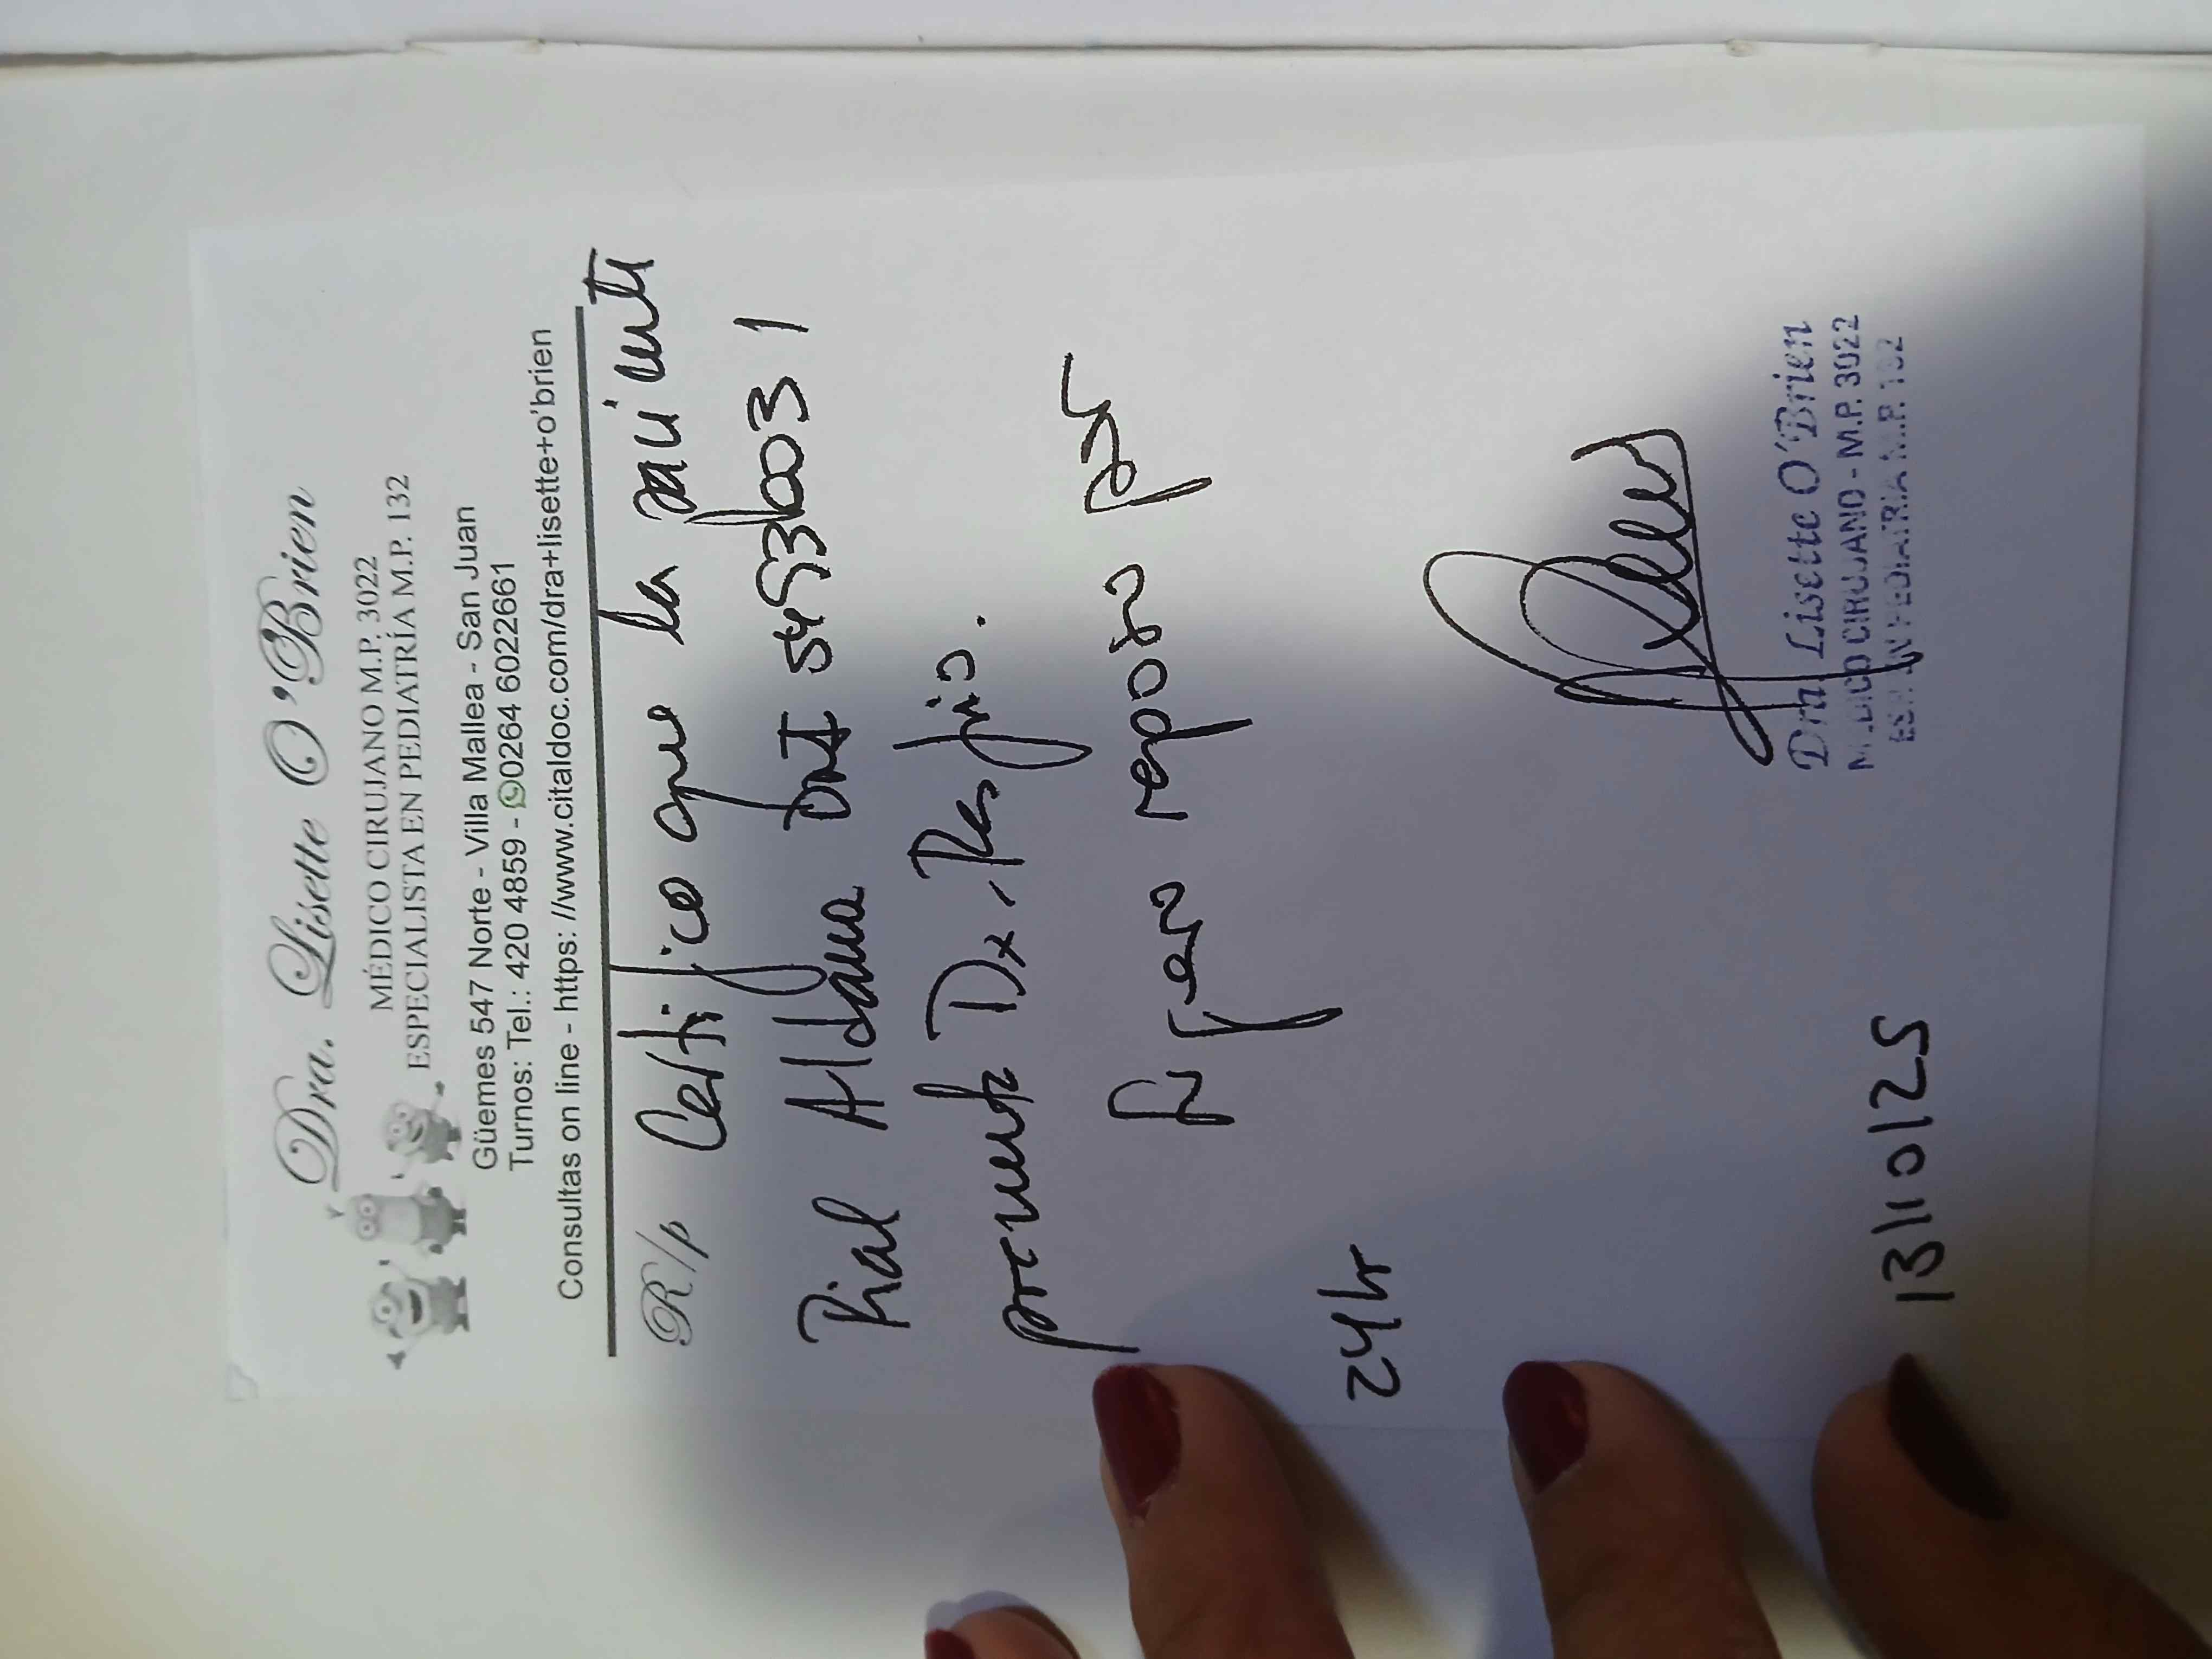 Dra. Lisette O'Brien
MÉDICO CIRUJANO M.P. 3022
ESPECIALISTA EN PEDIATRÍA M.P. 132
Güemes 547 Norte - Villa Mallea - San Juan
Turnos: Tel.: 420 4859 - 0264 6022661
Consultas on line - https: //www.citaldoc.com/dra+lisette+o'brien
R/p Certifico que la paciente
Rial Aldana DNI 54536031
presenta Dx, Resfrio.
reposo por
24hr
Dra. Lisette O'Brien
MEDICO CIRUJANO - M.P. 3022
ESP. EN PEDIATRIA M.P. 132
13/10/25